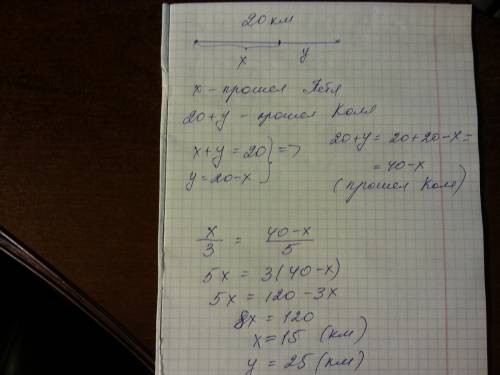 20 км
x
y
x - прошел Петя
20+y - прошел Коля
x+y=20 } =>
y=20-x
20+y = 20+20-x =
= 40-x
(прошел Коля)
x/3 = 40-x/5
5x = 3(40-x)
5x = 120-3x
8x = 120
x=15 (км)
y = 25 (км)